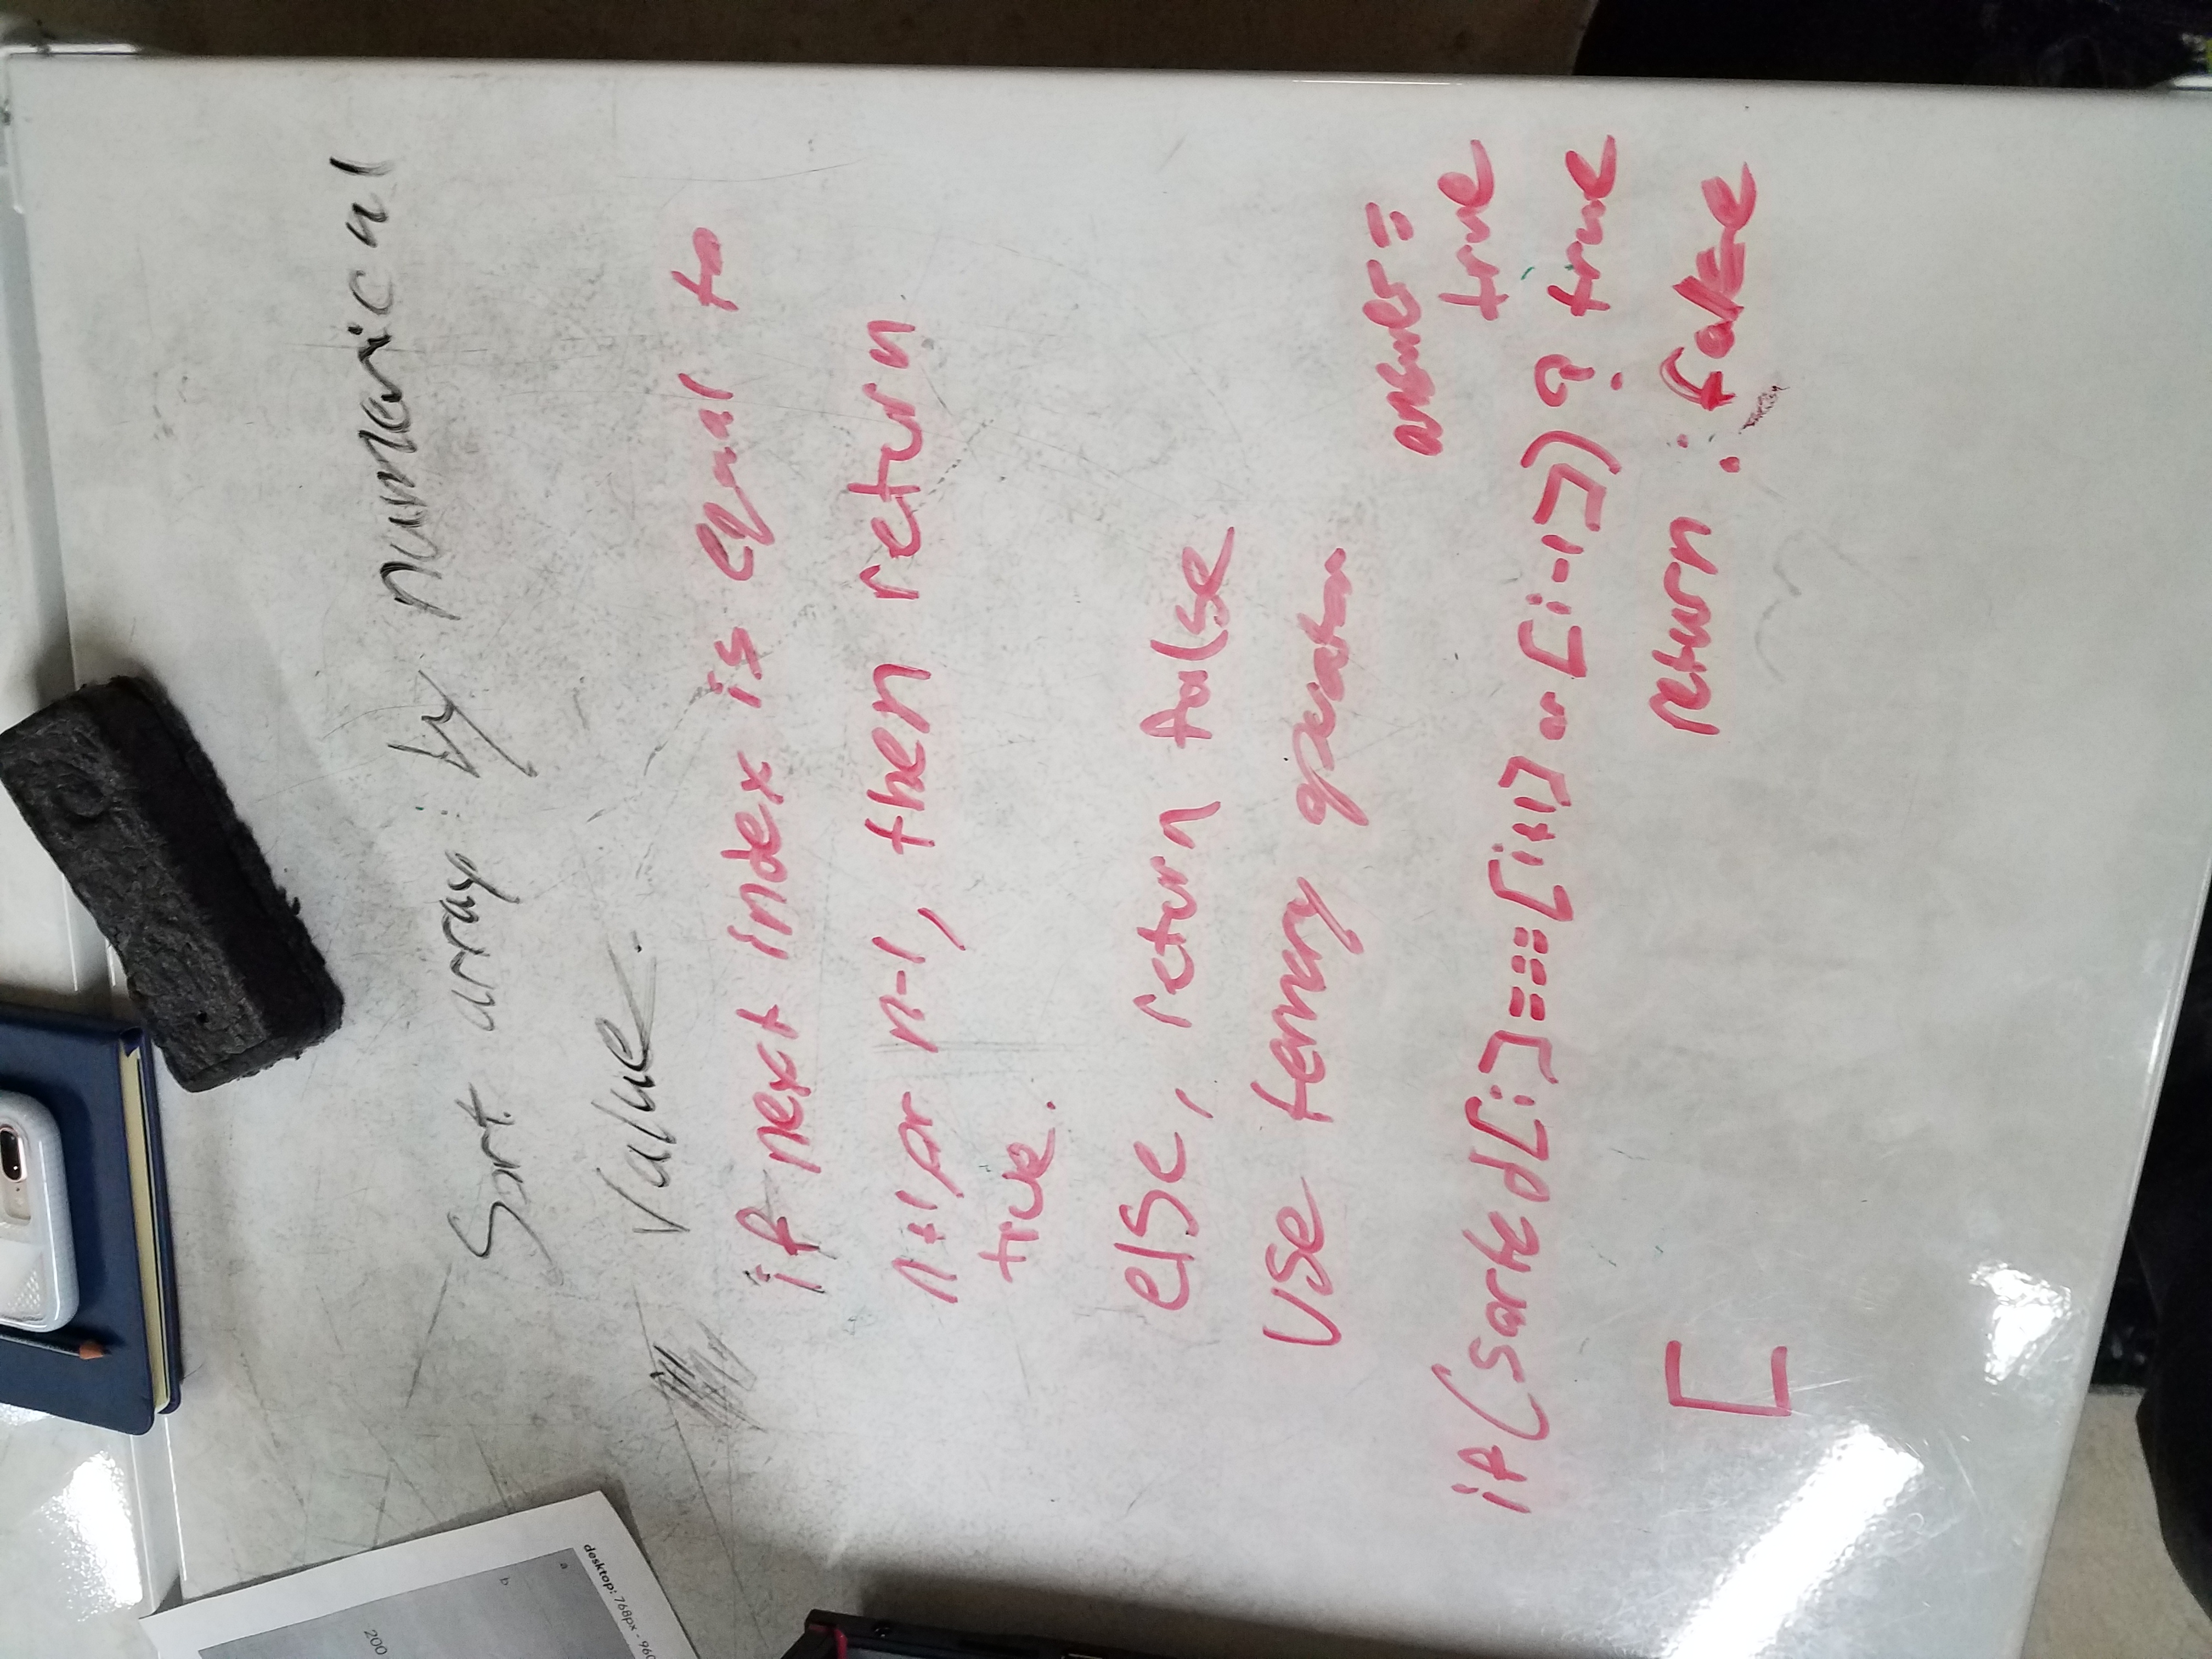 200
b
a
desktop: 768px - 960
Sort array by numerical
value.
if next index is equal to
n+1 or n-1, then return
true.
else, return false
use ternary operator
answer =
true
if(sorted[i]===[i+1] or [i-1]) ? true
return : false
[